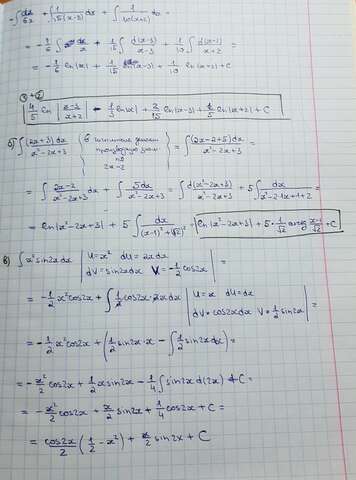 -∫dx/6x + ∫1/15(x-3) dx + ∫1/10(x+2) dx =
= -1/6 ∫dx/x + 1/15 ∫d(x-3)/x-3 + 1/10 ∫d(x+2)/x+2 =
= -1/6 ln|x| + 1/15 ln|x-3| + 1/10 ln|x+2| + C
4/5 ln|x-3/x+2| - 1/3 ln|x| + 2/15 ln|x-3| + 1/5 ln|x+2| + C
б) ∫(2x+3)dx/x²-2x+3 = ∫(2x-2+5)dx/x²-2x+3 =
производную знам.
2x-2
= ∫2x-2/x²-2x+3 dx + ∫5dx/x²-2x+3 = ∫d(x²-2x+3)/x²-2x+3 + 5∫dx/x²-2·1x+1+2 =
= ln|x²-2x+3| + 5∫dx/(x-1)²+(√2)² = ln|x²-2x+3| + 5·1/√2 arctg x-1/√2 + C
в) ∫x²sin2xdx | U=x² dU=2xdx
dV=sin2xdx V=-1/2cos2x | =
= -1/2x²cos2x + ∫1/2cos2x·2xdx | U=x dU=dx
dV=cos2xdx V=1/2sin2x | =
= -1/2x²cos2x + (1/2sin2x·x - ∫1/2sin2xdx) =
= -x²/2cos2x + 1/2xsin2x - 1/4∫sin2xd(2x) + C =
= -x²/2cos2x + x/2sin2x + 1/4cos2x + C =
= cos2x/2 (1/2 - x²) + x/2 sin2x + C